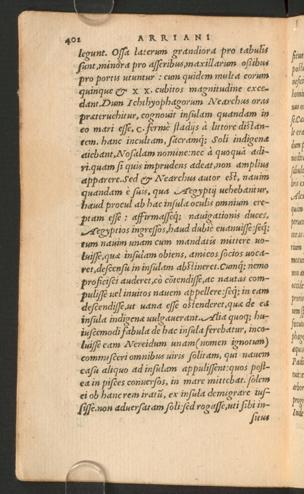 402 ARRIANI
legunt. Ossa laterum grandiora pro tabulis
sunt, minora pro asseribus, maxillarum ossibus
pro portis utuntur: cum quidem multa eorum
quinque & xx. cubitos magnitudine exce-
dant. Dum Ichthyophagorum Nearchus oras
præteruehitur, cognouit insulam quandam in
eo mari esse, C. fermè stadijs à littore distan-
tem. hanc incultam, sacramq; Soli indigenæ
aiebant, Nosalam nomine: nec à quoquā adi-
ri. quam si quis imprudens adeat, non amplius
apparere. Sed & Nearchus autor est, nauim
quandam è suis, qua Aegyptij uehebantur,
haud procul ab hac insula oculis omnium ere-
ptam esse: affirmasseq; nauigationis duces,
Aegyptios ingressos, haud dubiè euanuisse: seq;
tum nauim unam cum mandatis mittere uo-
luisse, quæ insulam obiens, amicos socios uoca-
ret, descensu in insulam abstineret. Cumq; nemo
proficisci auderet, eò cōtendisse, ac nautas com-
pulisse uel inuitos nauem appellere: seq; in eam
descendisse, ut uana esse ostenderet, quæ de ea
insula indigenæ uulgauerant. Alia quoq; hu-
iuscemodi fabula de hac insula ferebatur, inco-
luisse eam Nereidum unam (nomen ignotum)
commisceri omnibus uiris solitam, qui nauem
casu aliquo ad insulam appulissent: quos post-
ea in pisces conuersos, in mare mittebat. solem
ei ob hanc rem iratū, ex insula demigrare ius-
sisse. non aduersatam soli: sed rogasse, uti sibi in-
situs